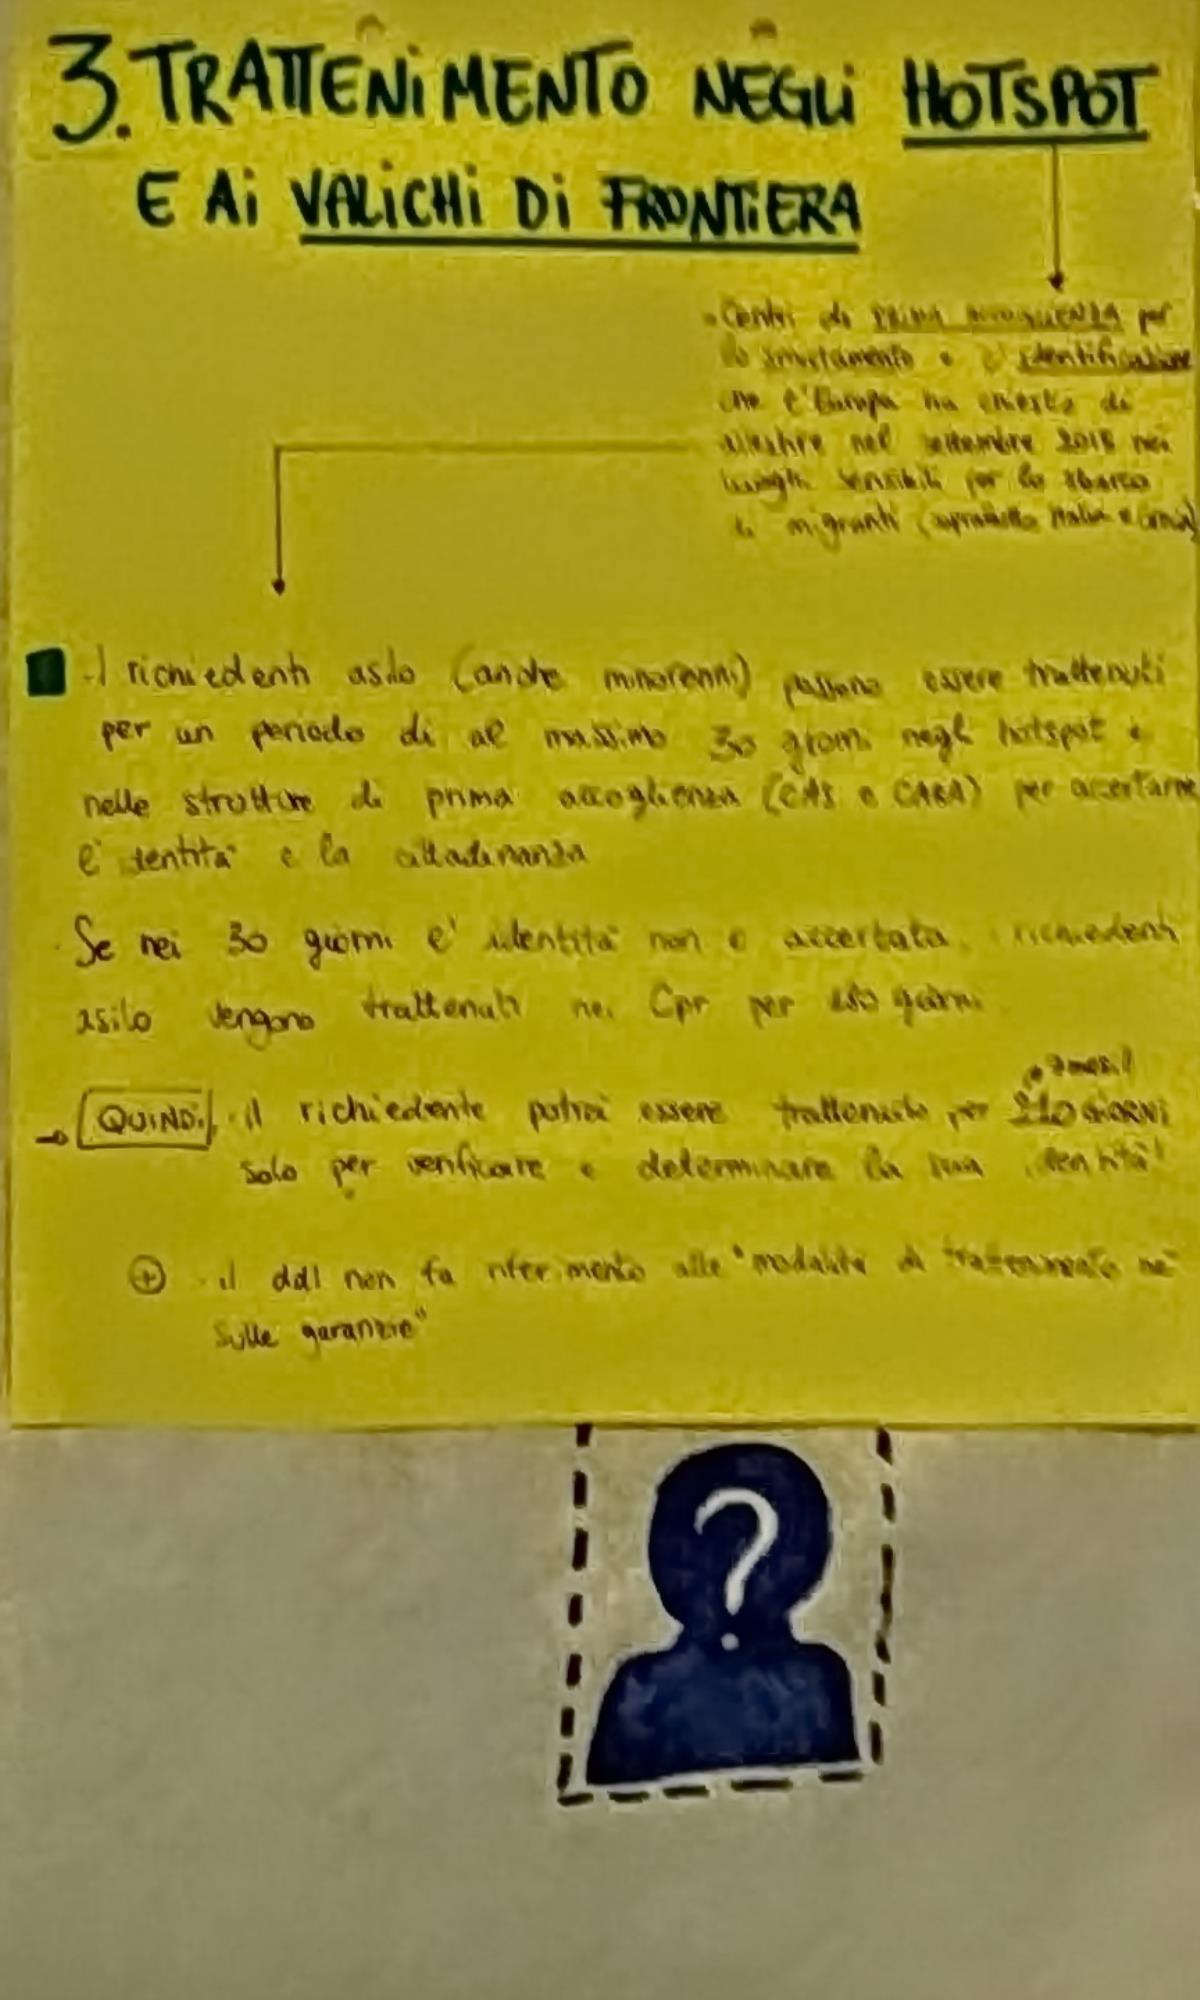 3. TRATTENiMENTO NEGLi HOTSPOT
E Ai VALiCHi Di FRONTiERA
Centri di PRIMA ACCOGLIENZA per
lo smistamento e l'identificazione
che l'Europa ha chiesto di
allestire nel settembre 2015 nei
luoghi sensibili per lo sbarco
di migranti (soprattutto Italia e
I richiedenti asilo (anche minorenni) possono essere trattenuti
per un periodo di al massimo 30 giorni negli hotspot e
nelle strutture di prima accoglienza (CAS e CARA) per accertarne
l'identità e la cittadinanza
Se nei 30 giorni l'identità non è accertata, i richiedenti
asilo vengono trattenuti nei Cpr per 180 giorni
7 mesi!
→ QUINDI il richiedente potrà essere trattenuto per 210 GIORNI
solo per verificare e determinare la sua identità!
+ il ddl non fa riferimento alle "modalità di trattenimento né
sulle garanzie"
?